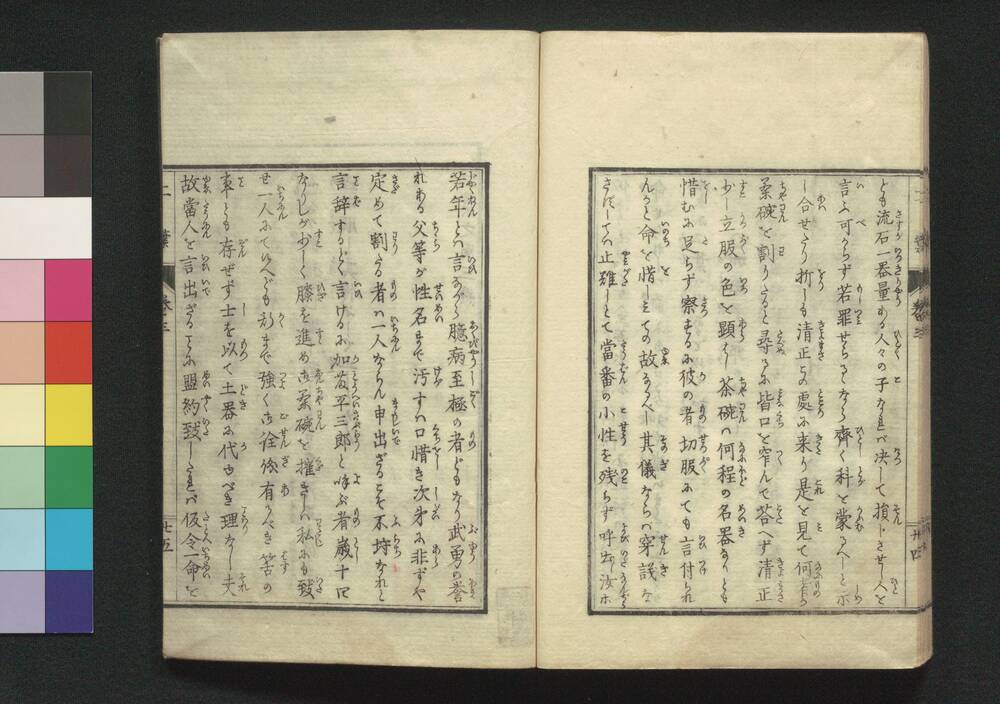 ども流石一器量ある人々の子なれバ决して損させし人を
言ふ可からず若罪せらるゝなら齊く科を蒙るべしと示
し合せたり折しも清正その處に来り是を見て何者か
茶碗を割りたると尋るに皆口を窄んで答へず清正
少し立服の色を顕ハし茶碗ハ何程の名器なりとも
惜むに足らず察するに彼の者切服にても言付られ
んかと命を惜しミての故なるべし其儀ならバ穿議な
さバてハ止難しとて當番の小性を残らず呼出し汝等
若年とハ言ながら臆病至極の者どもなり武勇の誉
れある父等が性名まで汚すハ口惜き次㐧に非ずや
定めて割たる者ハ一人ならん申出ざるこそ不埒なれと
言辞するどく言けるに加藤平三郎と呼ぶ者歳十四
なりしが少しく膝を進め御茶碗を摧きしハ私にも致
せ一人にていへども斯まで強く御詮義有べき筈の
事とも存ぜず士を以て土器に代ゆべき理なし夫
故當人を言出ざるやうに盟約致したれバ仮令一命を
卷三
廿四
廿五